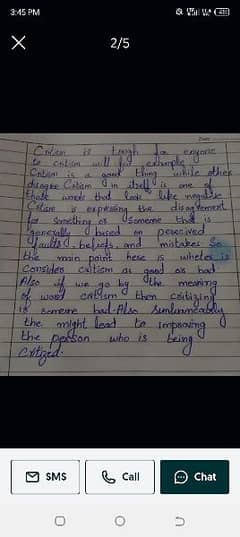 3:45 PM
2/5
Critism is tough for enyone
to critism will for example,
Critism is a good thing while other
disagree Critism in itself is one of
those words that look like negative
Critism is expressing the disagreement
for something or someone that is
generally based on perceived
faults, beliefs, and mistakes So
the main point here is wheter is
Consider critism as good or bad
Also if we go by the meaning
of word critism then critizing
is someone bad. Also
the might lead to improving
the person who is being
Critized.
SMS
Call
Chat